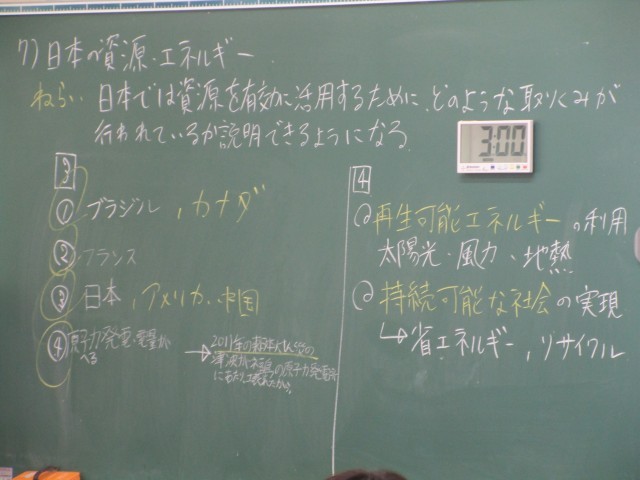 7) 日本の資源・エネルギー
ねらい 日本では資源を有効に活用するために、どのような取りくみが
行われているか説明できるようになる。
3:00
3
① ブラジル，カナダ
② フランス
③ 日本，アメリカ，中国
④ 原子力発電 発電量が
へる
→ 2011年の東日本大しんさいの
津波が福島の原子力発電所
にあたって壊れたから。
4
◎再生可能エネルギーの利用
太陽光・風力・地熱
◎持続可能な社会の実現
↳省エネルギー，リサイクル